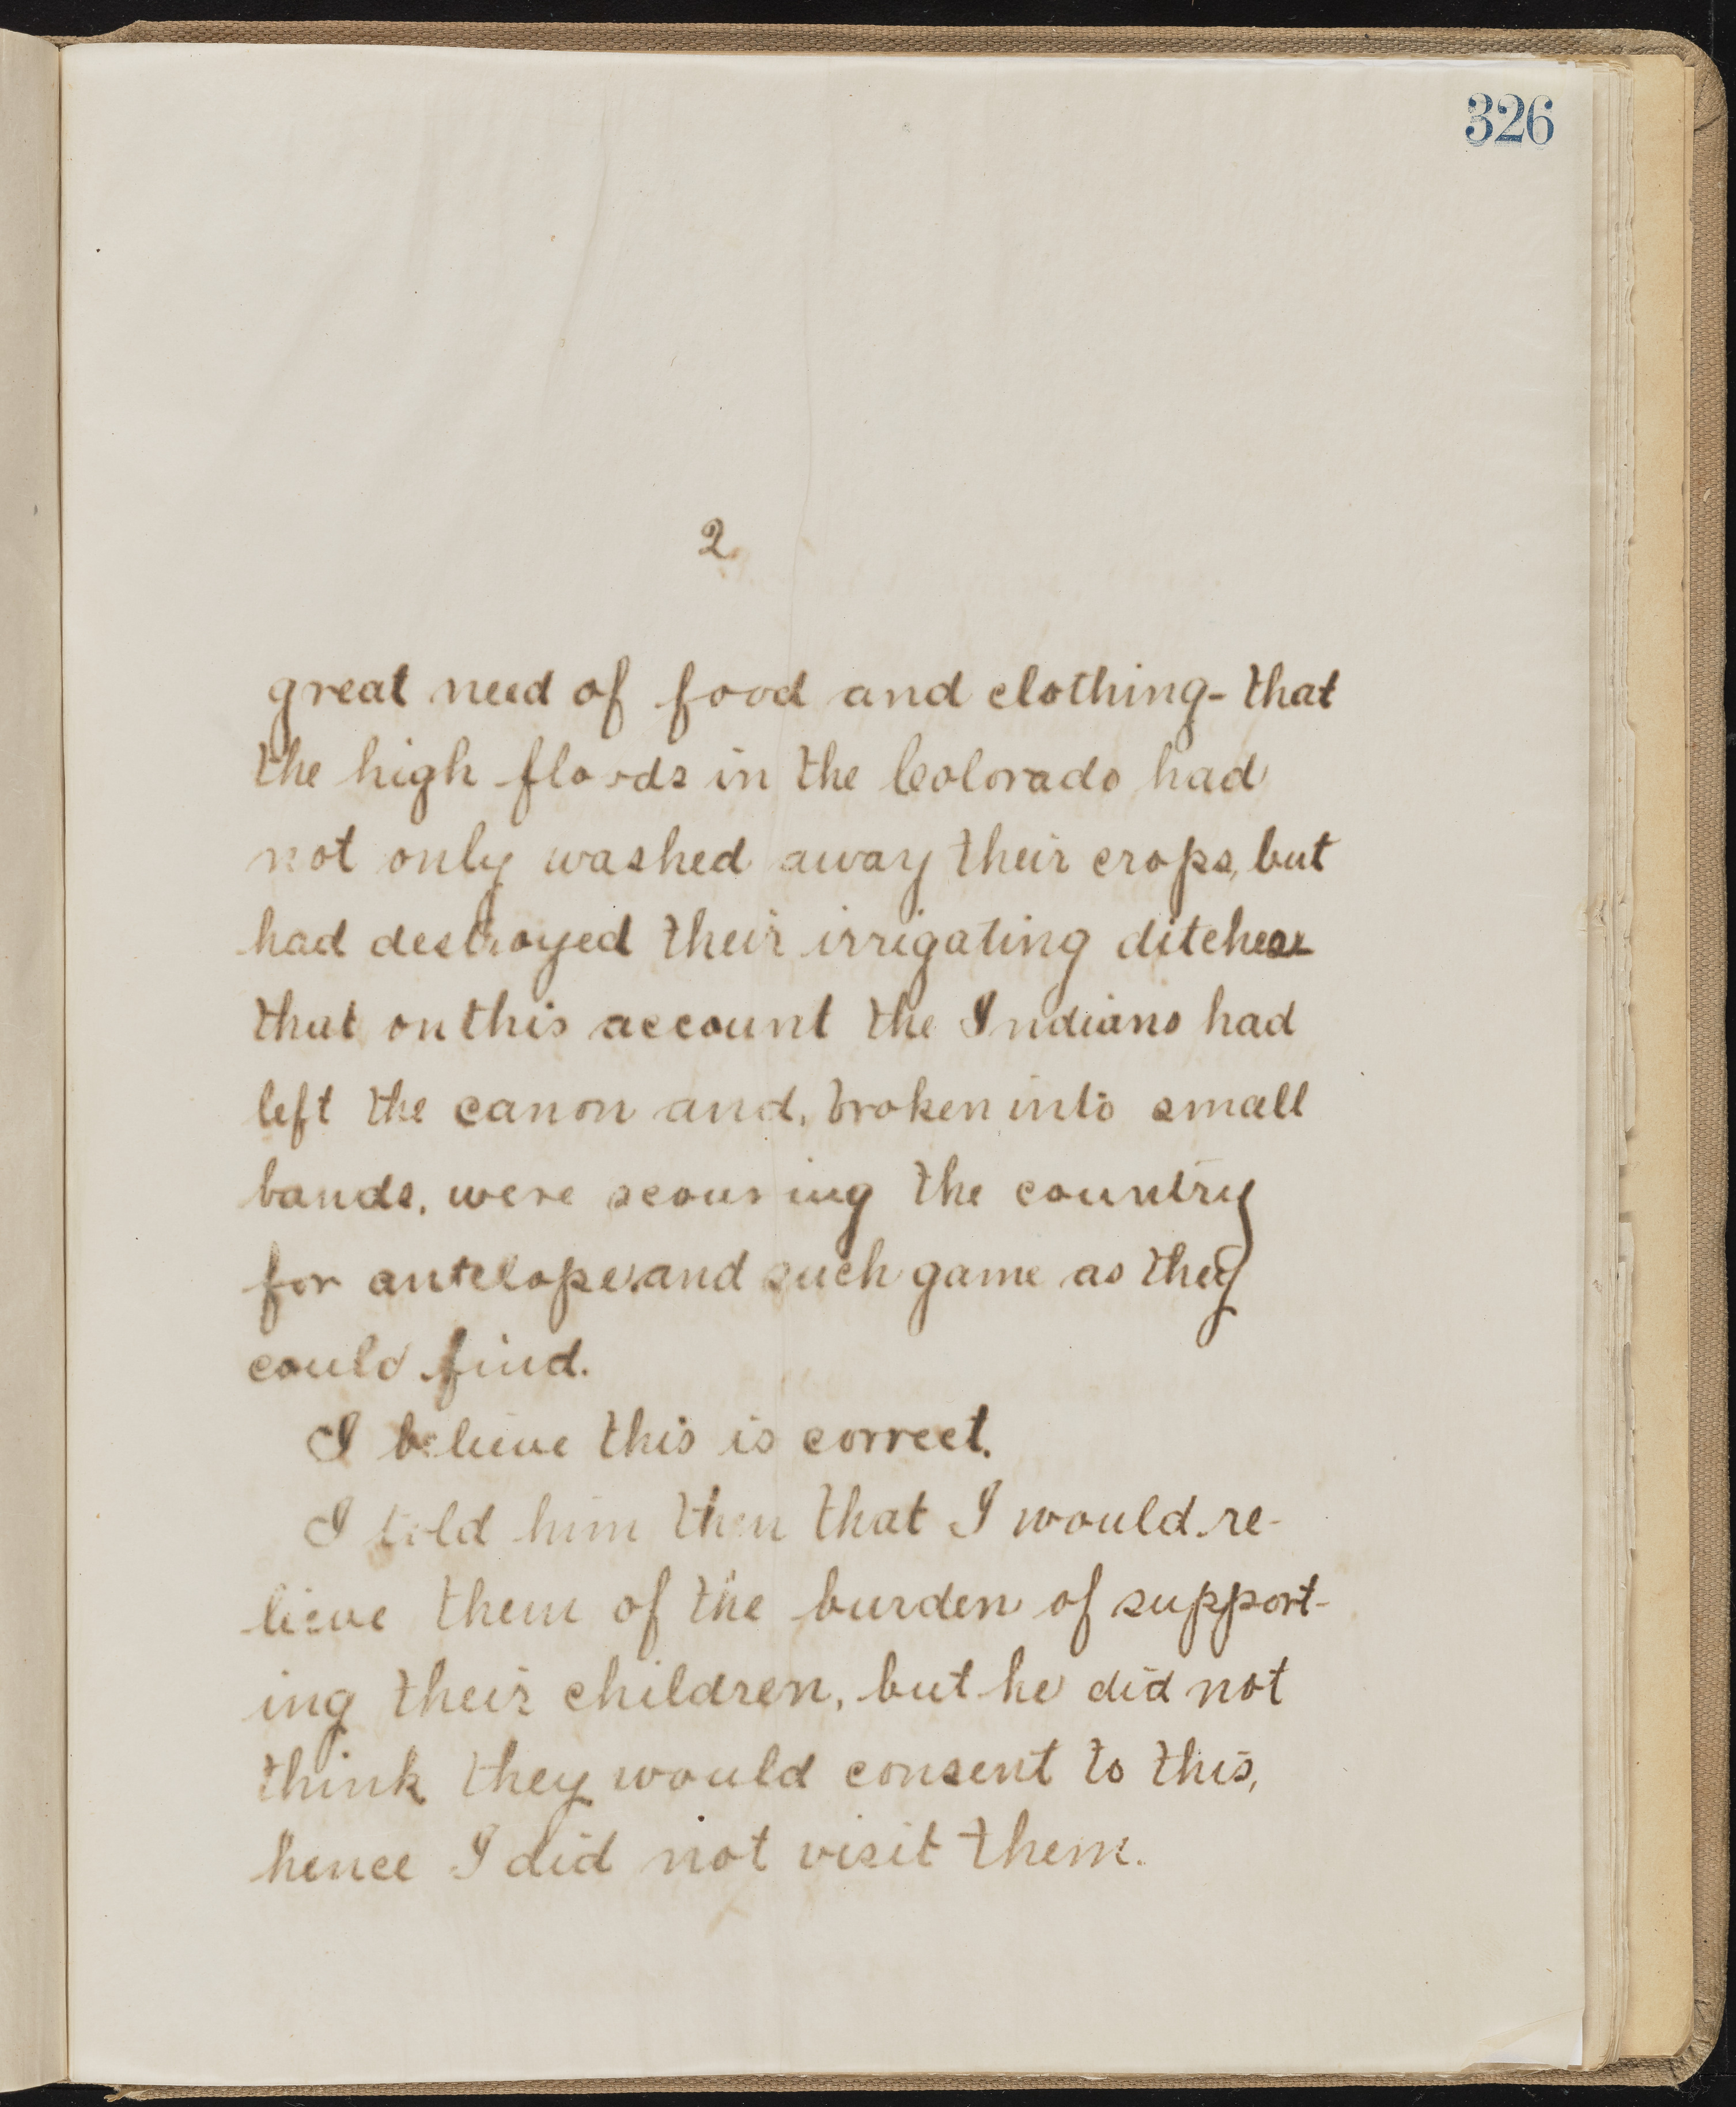 326
2
great need of food and clothing- that
the high floods in the Colorado had
not only washed away their crops, but
had destroyed their irrigating ditches
that on this account the Indians had
left the canon and, broken into small
bands, were scouring the country
for antelope and such game as they
could find.
I believe this is correct.
I told him then that I would re-
lieve them of the burden of support-
ing their children, but he did not
think they would consent to this,
hence I did not visit them.